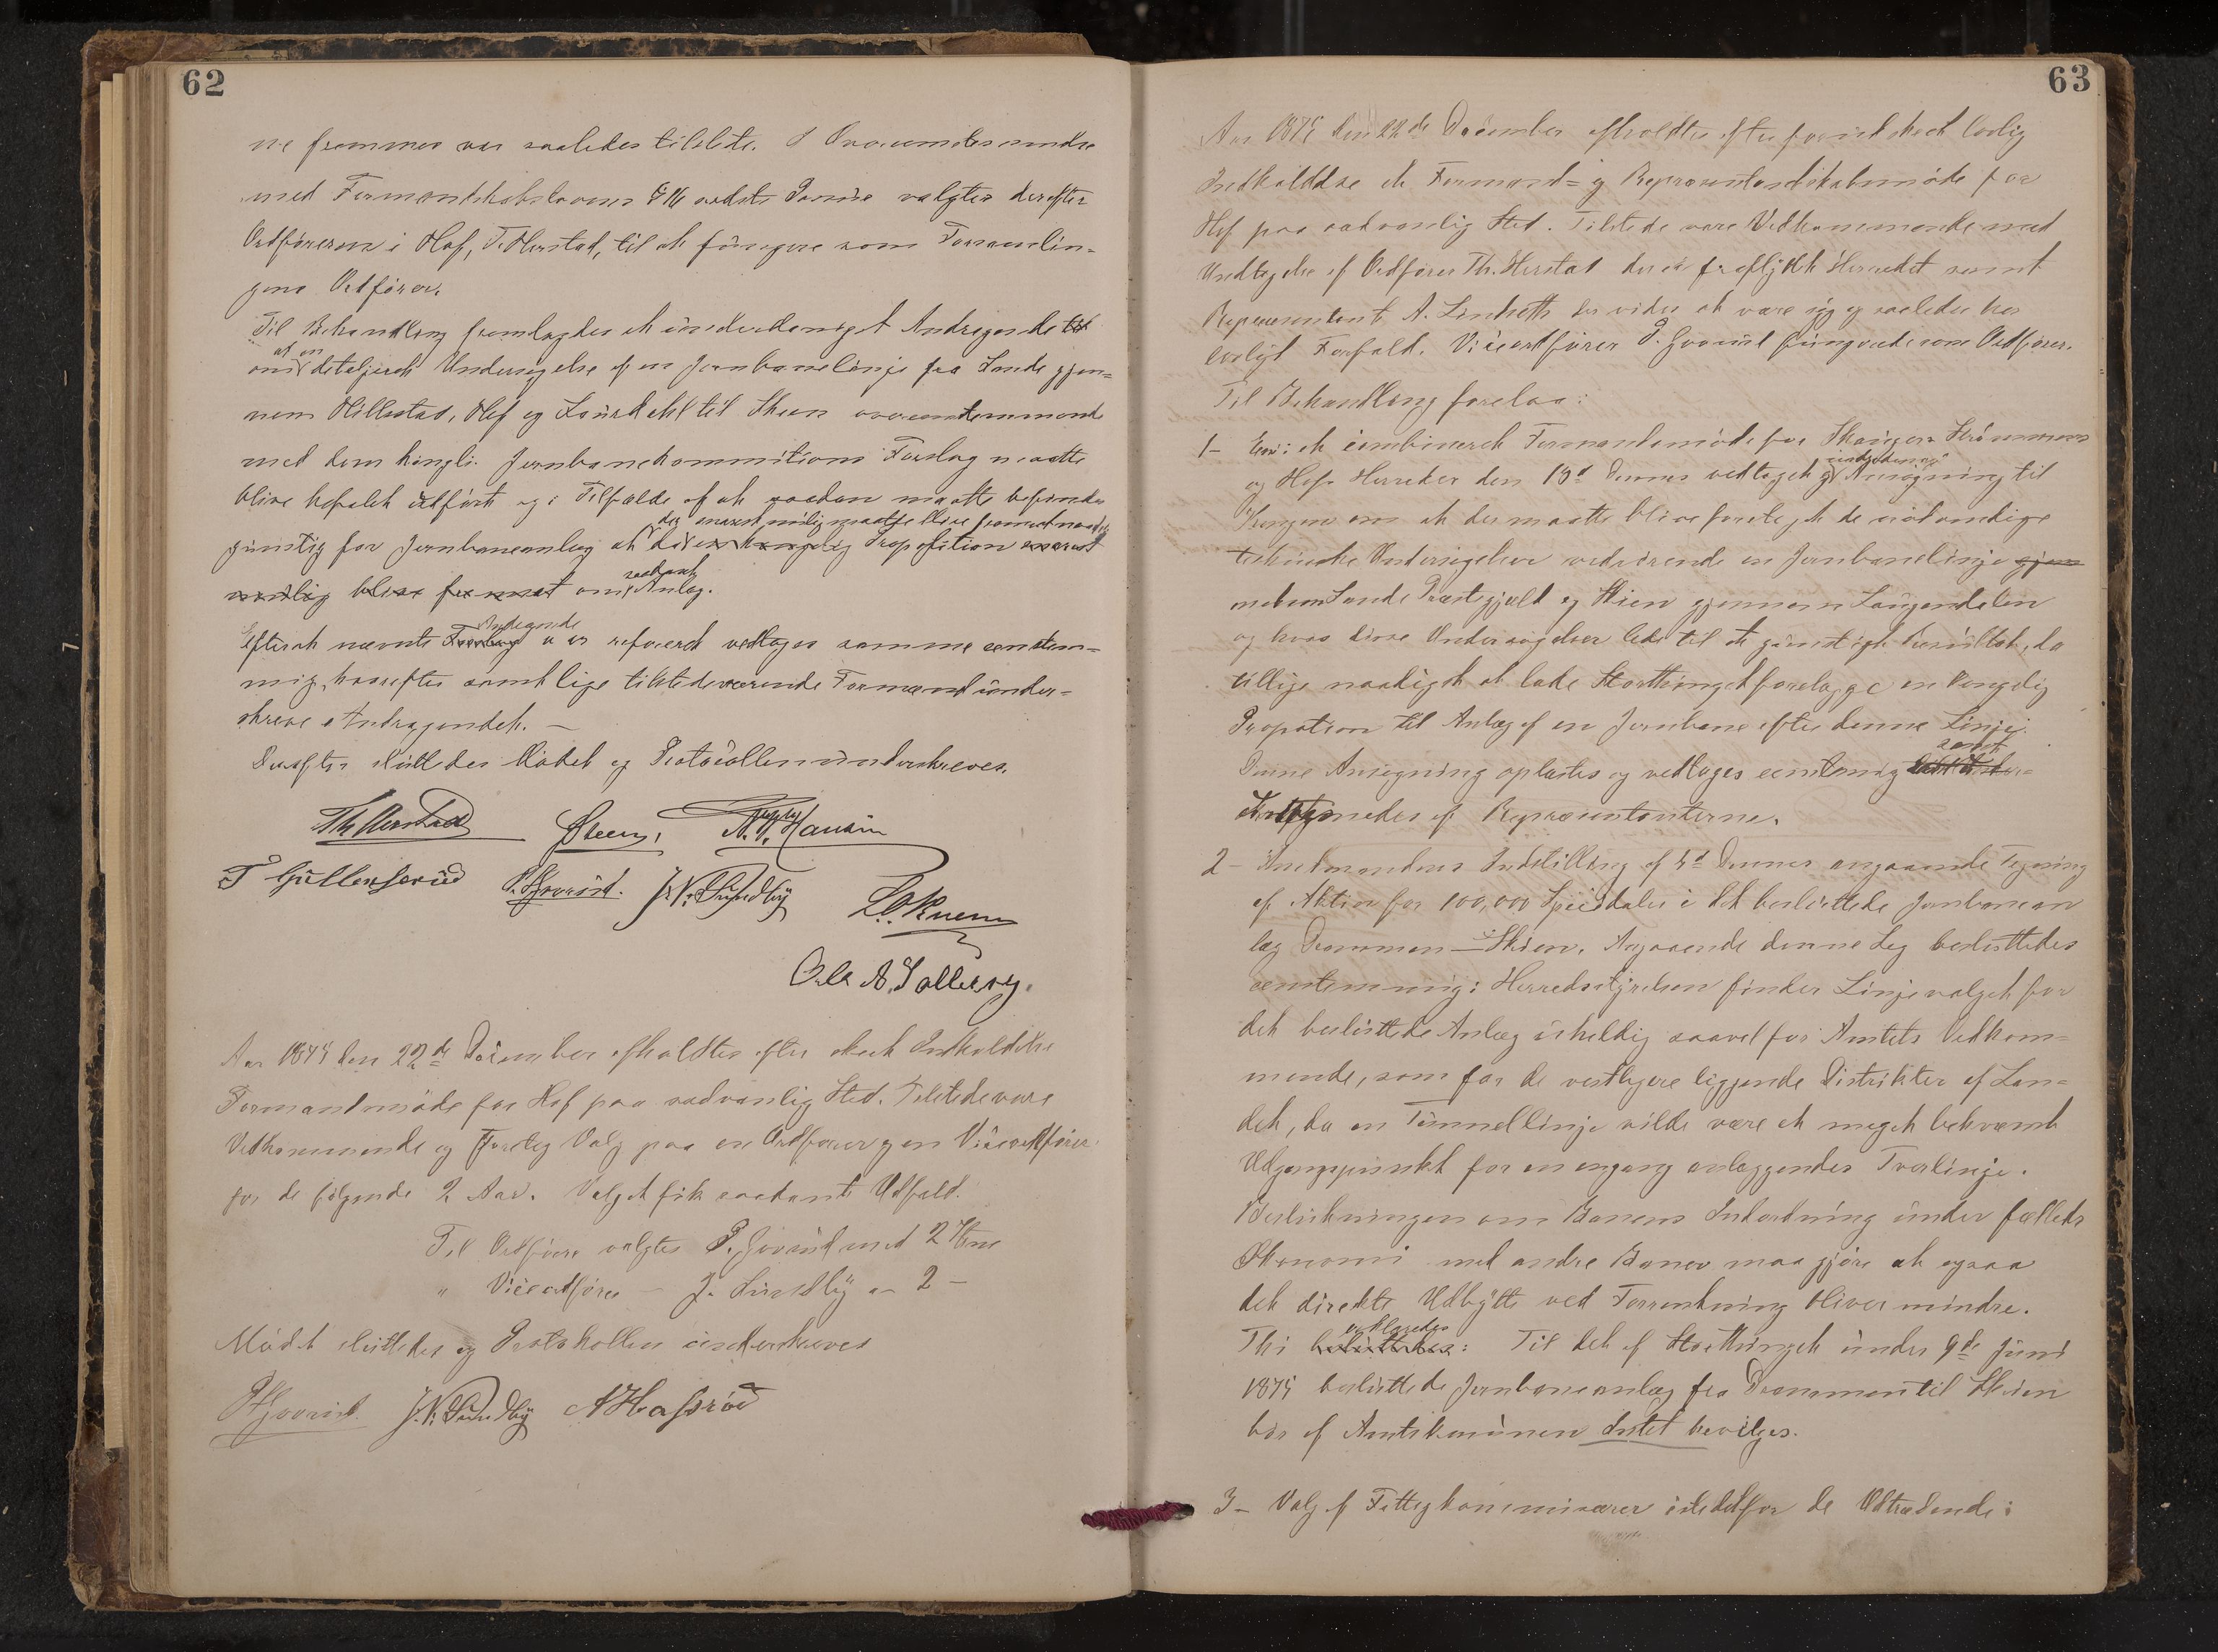 62
ne fremmes var saaledes tilstede. I Overeensstemmelse
med Formandskabslovens § sidste Passus valgtes derefter
Ordføreren i Hof, Th. Herstad, til at fungere som Forsamlin-
gens Ordfører.
Til Behandling fremlagdes et underdanigst Andragende
om at en detaljeret Undersøgelse af en Jernbanelinje fra Sande gjen-
nem Hillestad, Hof og Laurdahl til Skien overeensstemmende
med den kongl. Jernbanekommissions Forslag maatte
blive befalet udført og i Tilfælde af at saadan maatte befindes
gunstig for Jernbaneanlæg at der snarest mulig maatte blive fremsat naadigst Proposition
om saadant Anlæg.
Efterat nævnte Andragende var refereret vedtoges samme eenstem-
mig, hvorefter samtlige tilstedeværende Formænd under-
skrev Andragendet. —
Derefter sluttedes Mødet og Protocollen underskreves.
Th Herstad Steen, N. N. Hansen
T Gullenserud P. Gjvorud. J. N. Sundby L. O. Ruem
Ole A. Solberg.
Aar 1875 den 22de December afholdtes efter skeet Indkaldelse
Formandsmøde for Hof paa sædvanlig Sted. Tilstede vare
Vedkommende og foretog Valg paa en Ordfører og en Viceordfører
for de følgende 2 Aar. Valget fik saadant Udfald.
Til Ordfører valgtes P. Gjvorud med 2 Stme
" Viceordfører — J. Sundby — 2 —
Mødet sluttedes og Protokollen underskreves
P Gjvorud. J. N. Sundby A Hassrød
63
Aar 1875 den 22de December afholdtes efter forudskeet lovlig
Indkaldelse et Formand- og Repræsentantskabsmøde for
Hof paa sædvanlig Sted. Tilstede vare Vedkommende med
Undtagelse af Ordfører Th. Herstad der er fraflyttet Herredet samt
Repræsentant A. Linheth der vides at være syg og saaledes har
lovligt Forfald. Viceordfører P. Gjvorud fungerede som Ordfører.
Til Behandling forelaa:
1— En i et combineret Formandsmøde for Skouger- Strømmens
og Hofs Herreder den 18d Dennes vedtaget underdanigst Ansøgning til
Kongen om at der maatte blive foretaget de nødvendige
tekniske Undersøgelser vedrørende en Jernbanelinje
mellem Sande Præstegjæld og Skien gjennem Laugendalen
og hvis disse Undersøgelser lede til et gunstigt Resultat, da
tillige naadigst at lade Storthinget forelægge en Kongelig
Propotion til Anlæg af en Jernbane efter denne Linje.
Denne Ansøgning oplæstes og vedtoges eenstemmig samt
af Repræsentanterne.
2— Amtmandens Indstilling af 4d Dennes angaaende Tegning
af Aktier for 100,000 Speciedaler i det besluttede Jernbanean
læg Drammen—Skien. Angaaende denne Sag besluttedes
eenstemmig: Herredsstyrelsen finder Linjevalget for
det besluttede Anlæg uheldig saavel for Amtets Vedkom-
mende, som for de vestligere liggende Distrikter af Lan-
det, da en Tunnellinje vilde være et meget bekvemt
Udgangspunkt for en engang anlæggendes Tverlinje.
Beslutningen om Banens Indordning under fælleds
Økonomi med andre Baner maa gjøre at ogsaa
det direkte Udbytte ved Forrentning bliver mindre.
Thi erklæredes: Til det af Storthinget under 9de Juni
1875 besluttede Jernbaneanlæg fra Drammen til Skien
bør af Amtskomunen Intet bevilges.
3— Valg af Fattigkommissærer istedetfor de Udtrædende: